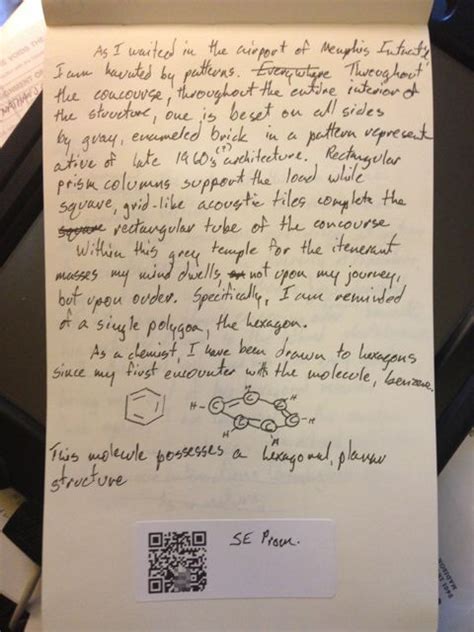 As I waited in the airport of Memphis
I am haunted by patterns. Everywhere Throughout
the concourse, throughout the entire interior of
the structure, one is beset on all sides
by gray, enameled brick in a pattern represent
ative of late 1960s(?) architecture. Rectangular
prism columns support the load while
square, grid-like acoustic tiles complete the
square rectangular tube of the concourse
Within this grey temple for the itenerant
masses my mind dwells, not upon my journey,
but upon order. Specifically, I am reminded
of a single polygon, the hexagon.
As a chemist, I have been drawn to hexagons
since my first encounter with the molecule, benzene.
H C C H
H C C H
C C
H H
This molecule possesses a hexagonal, planar
structure
SE Prom.
MADISON